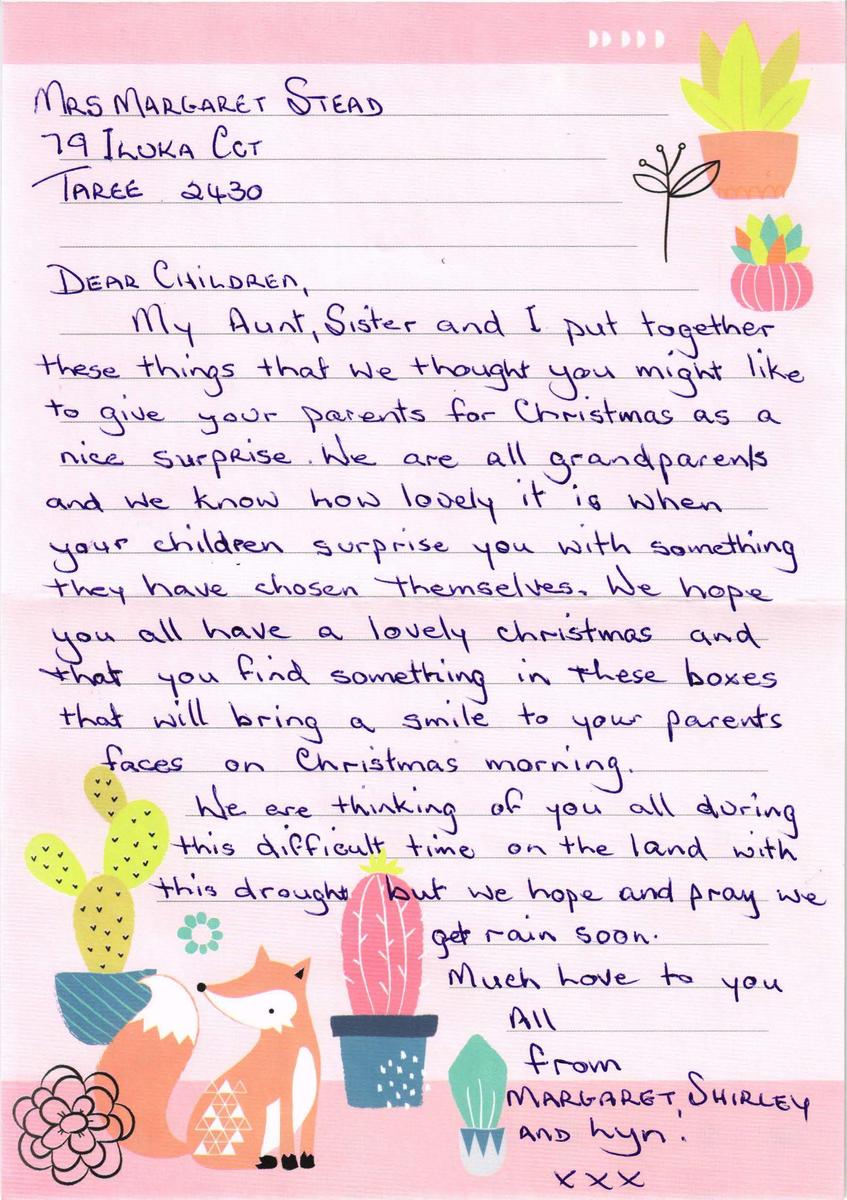 MRS MARGARET STEAD
79 ILUKA CCT
TAREE 2430
DEAR CHILDREN,
My Aunt, Sister and I put together
these things that we thought you might like
to give your parents for Christmas as a
nice surprise. We are all grandparents
and we know how lovely it is when
your children surprise you with something
they have chosen themselves. We hope
you all have a lovely christmas and
that you find something in these boxes
that will bring a smile to your parents
faces on Christmas morning.
We are thinking of you all during
this difficult time on the land with
this drought but we hope and pray we
get rain soon.
Much love to you
All
from
MARGARET, SHIRLEY
AND Lyn.
xxx